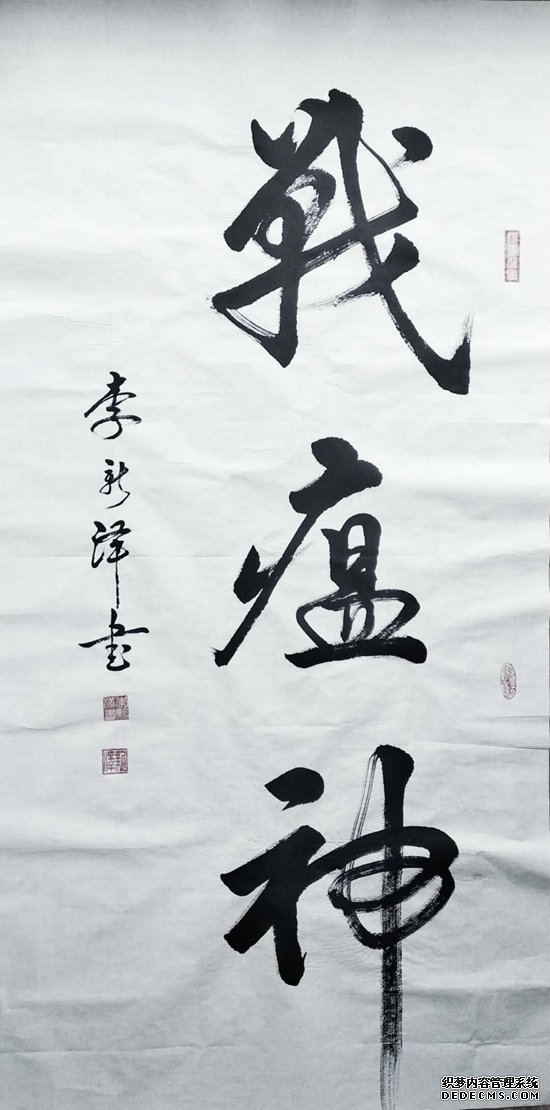 戰瘟神
李新泽书
织梦内容管理系统
DEDECMS.COM